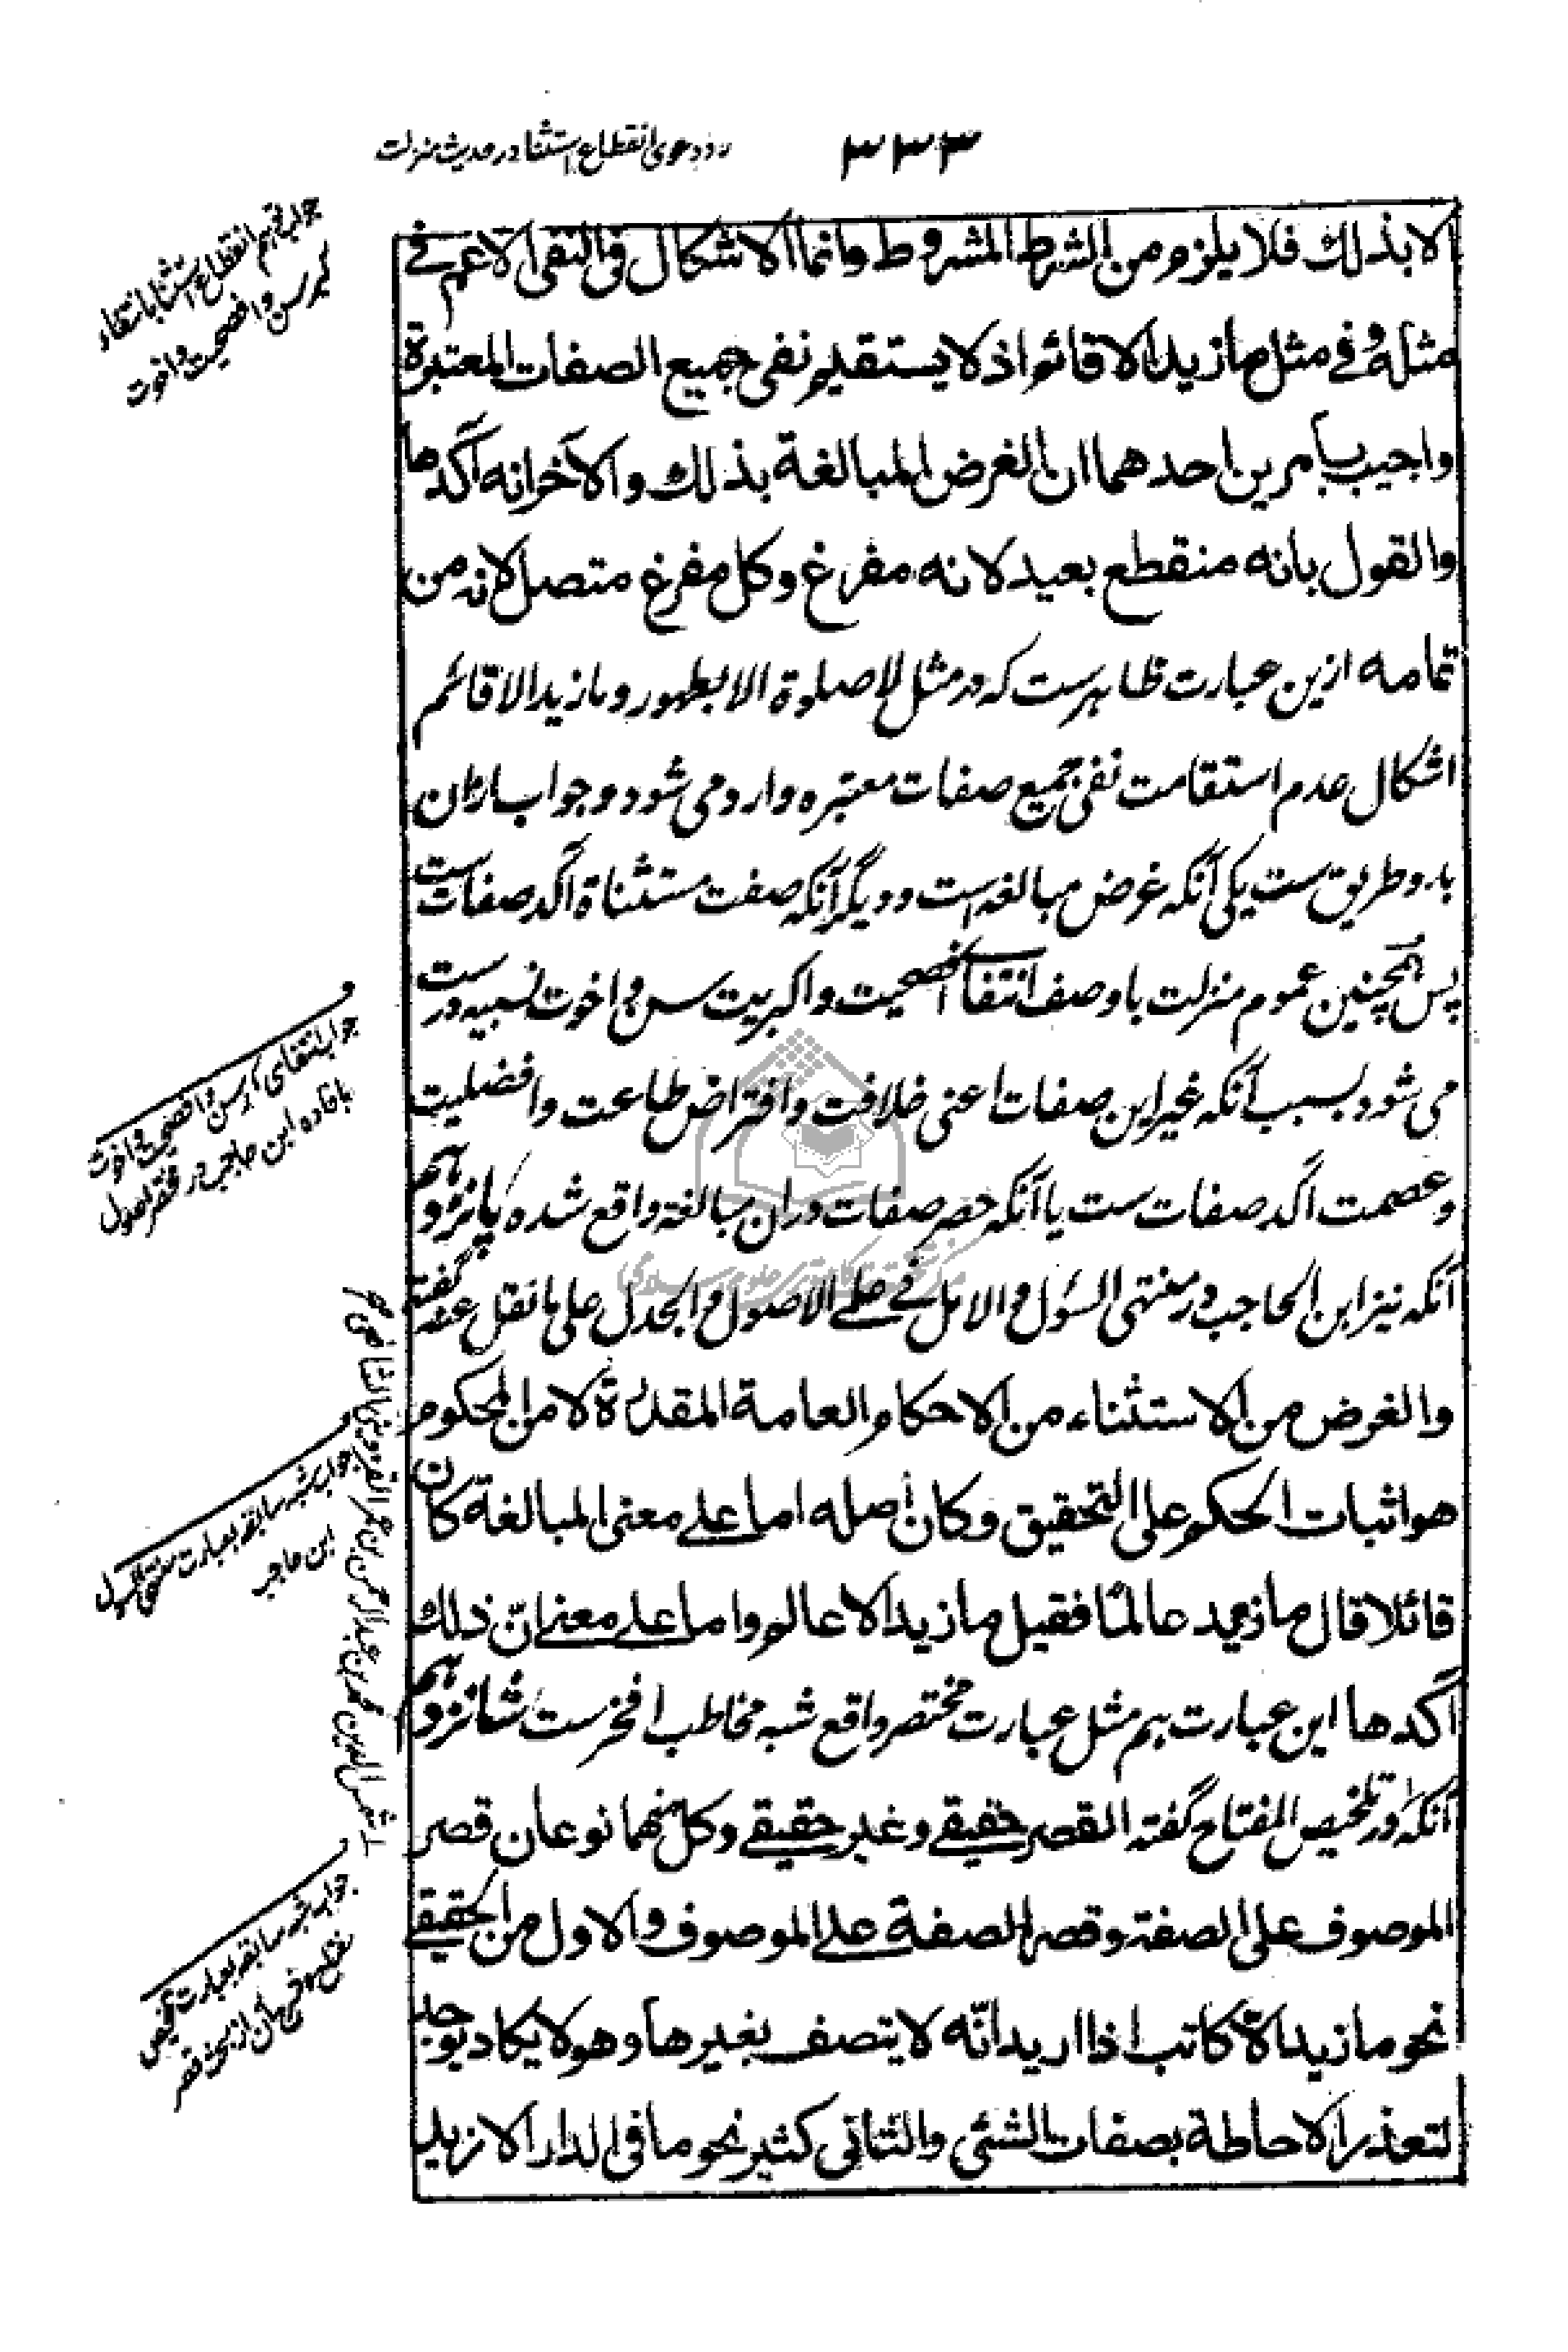 ۳۳۳
رد دعوی انقطاع استثنا در حدیث منزلت
الا بذلك فلا يلزم من الشرط المشروط وانما الاشكال فى النفى الاعم فے
مثله وفے مثل ما زيد الا قائم اذ لا يستقيم نفى جميع الصفات المعتبرة
واجيب بأمرين احدهما ان الغرض المبالغة بذلك والآخر انه آكدها
والقول بانه منقطع بعيد لانه مفرغ وكل مفرغ متصل لانه من
تمامه ازین عبارت ظاهرست که در مثل لا صلوة الا بطهور و ما زید الا قائم
اشکال عدم استقامت نفی جمیع صفات معتبره وارد می شود و جواب ازان
بدو طریق ست یکی آنکه غرض مبالغه است و دیگر آنکه صفت مستثناة آکد صفات ست
پس همچنین عموم منزلت با وصف انتفاء افصحیت و اکبریت سن و اخوت نسبیه درست
می شود بسبب آنکه غیر این صفات اعنی خلافت و افتراض طاعت و افضلیت
و عصمت آکد صفات ست یا آنکه حصر صفات دران مبالغة واقع شده پانزدهم
آنکه نیز ابن الحاجب در منتهی السؤل و الامل فے علمے الاصول و الجدل علی ما نقل عنه گفته
والغرض من الاستثناء من الاحكام العامة المقدرة لا من المحكوم
هو اثبات الحكم على التحقيق وكان اصله اما علے معنى المبالغة كان
قائلا قال ما زيد عالمًا فقيل ما زيد الا عالم واما علے معنے انّ ذلك
آكدها این عبارت هم مثل عبارت مختصر واقع شبه مخاطب افخرست شانزدهم
آنکه در تلخیص المفتاح گفته القصر حقيقے وغير حقيقے وكل منهما نوعان قصر
الموصوف على الصفة وقصر الصفة علے الموصوف والاول من الحقيقے
نحو ما زيد الا كاتب اذا اريد انّه لا يتصف بغيرها وهو لا يكاد يوجد
لتعذر الاحاطة بصفات الشئ والثانى كثير نحو ما فى الدار الا زيد
انقطاع استثنا بانتفاء
کبر سن و افصحیت و اخوت
جواب انتفای کبر سن و افصحیت و اخوت
بافاده ابن حاجب در مختصر الاصول
جواب شبه سابقه بعبارت منتهی السول
ابن حاجب
جواب شبه سابقه بعبارت تلخیص